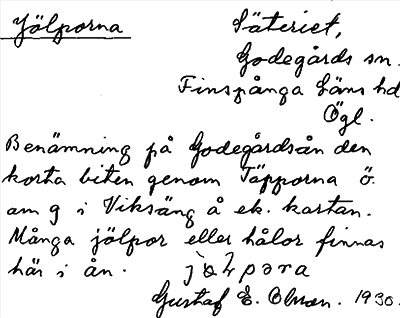 Jälporna
Säteriet,
Godegårds sn.
Finspånga Läns hd
Ögl.
Benämning på Godegårdsån den
korta biten genom Täpporna ö.
om g i Viksäng å ek. kartan.
Många jälpor eller hålor finnas
här i ån.
Gustaf E. Olsson. 1930.